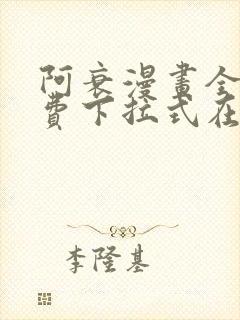 阿衰漫畫全
費下拉式在
李隆基